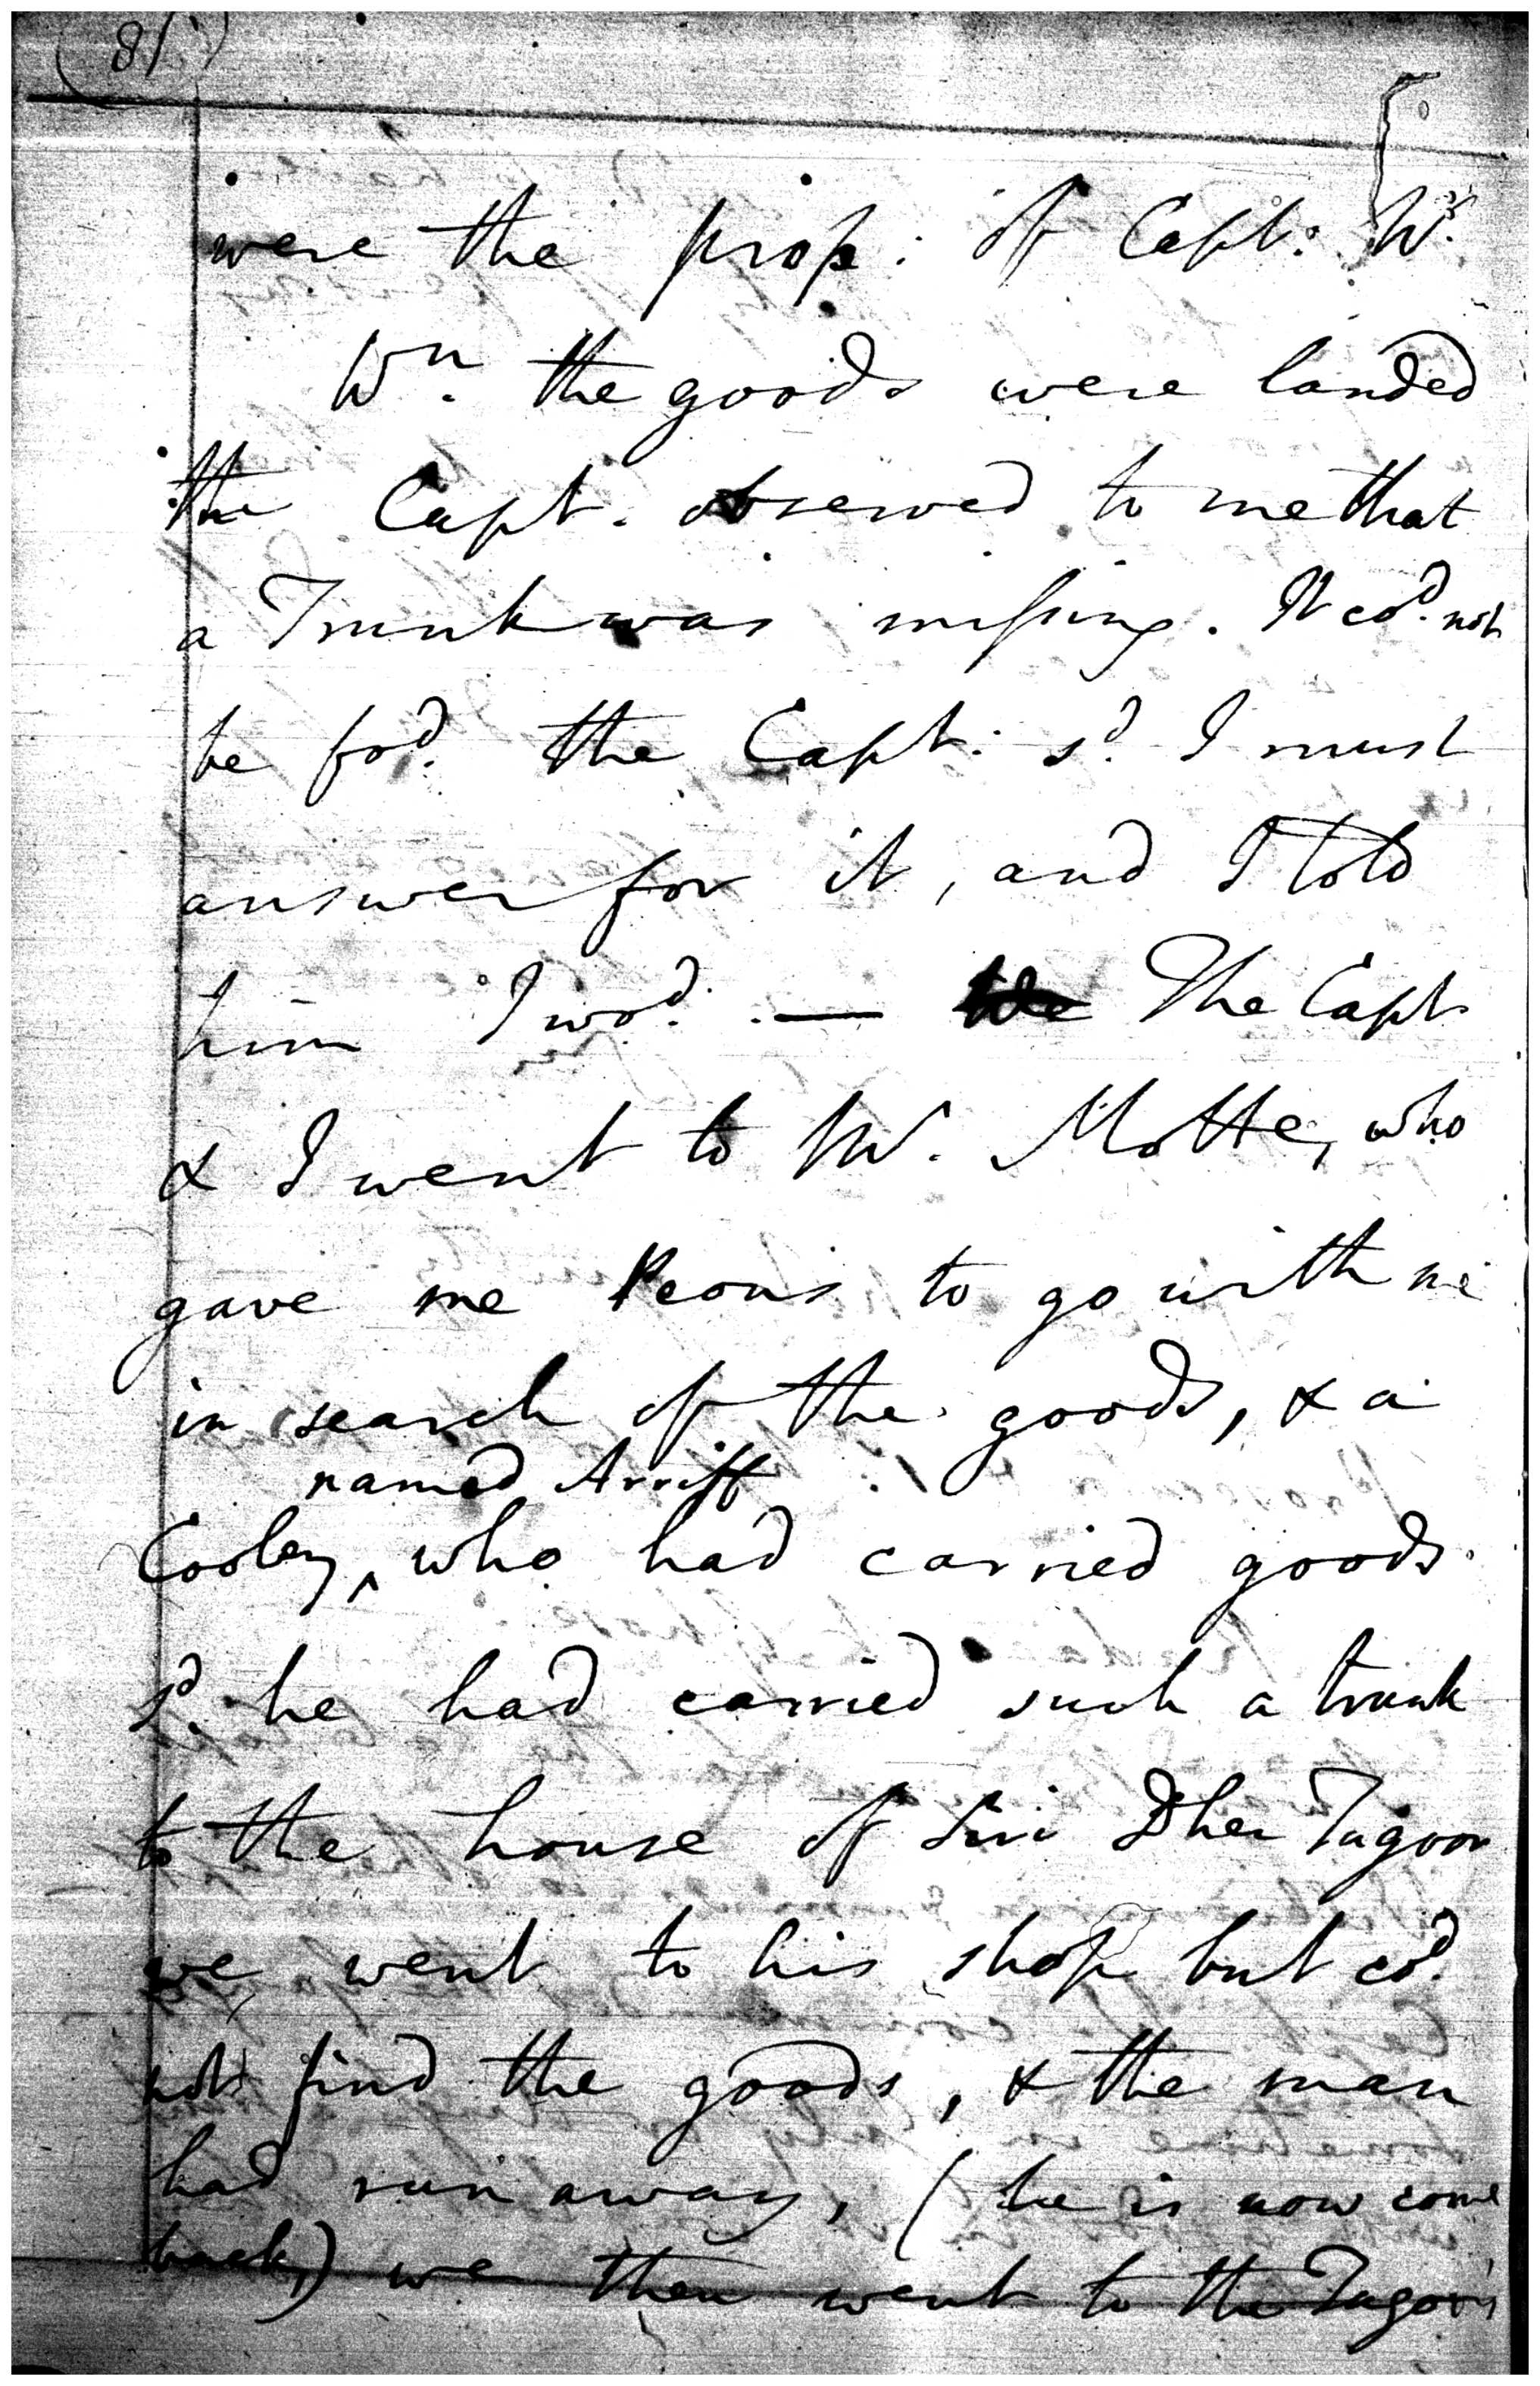 (81)
were the prop: of Capt: W.
Wn. the goods were landed
the Capt. observed to me that
a Trunk was missing. It cod. not
be fod. the Capt: sd. I must
answer for it, and I told
him I wod. — The Capt.
& I went to Mr. Motte, who
gave me Peons to go with me
in search of the goods, & a
named Arriff
Cooley ^ who had carried goods
sd. he had carried such a trunk
to the house of Siri Dher Tagoor
we went to his shop but cod.
not find the goods, & the man
had run away, (he is now come
back,) we then went to the Tagoor's